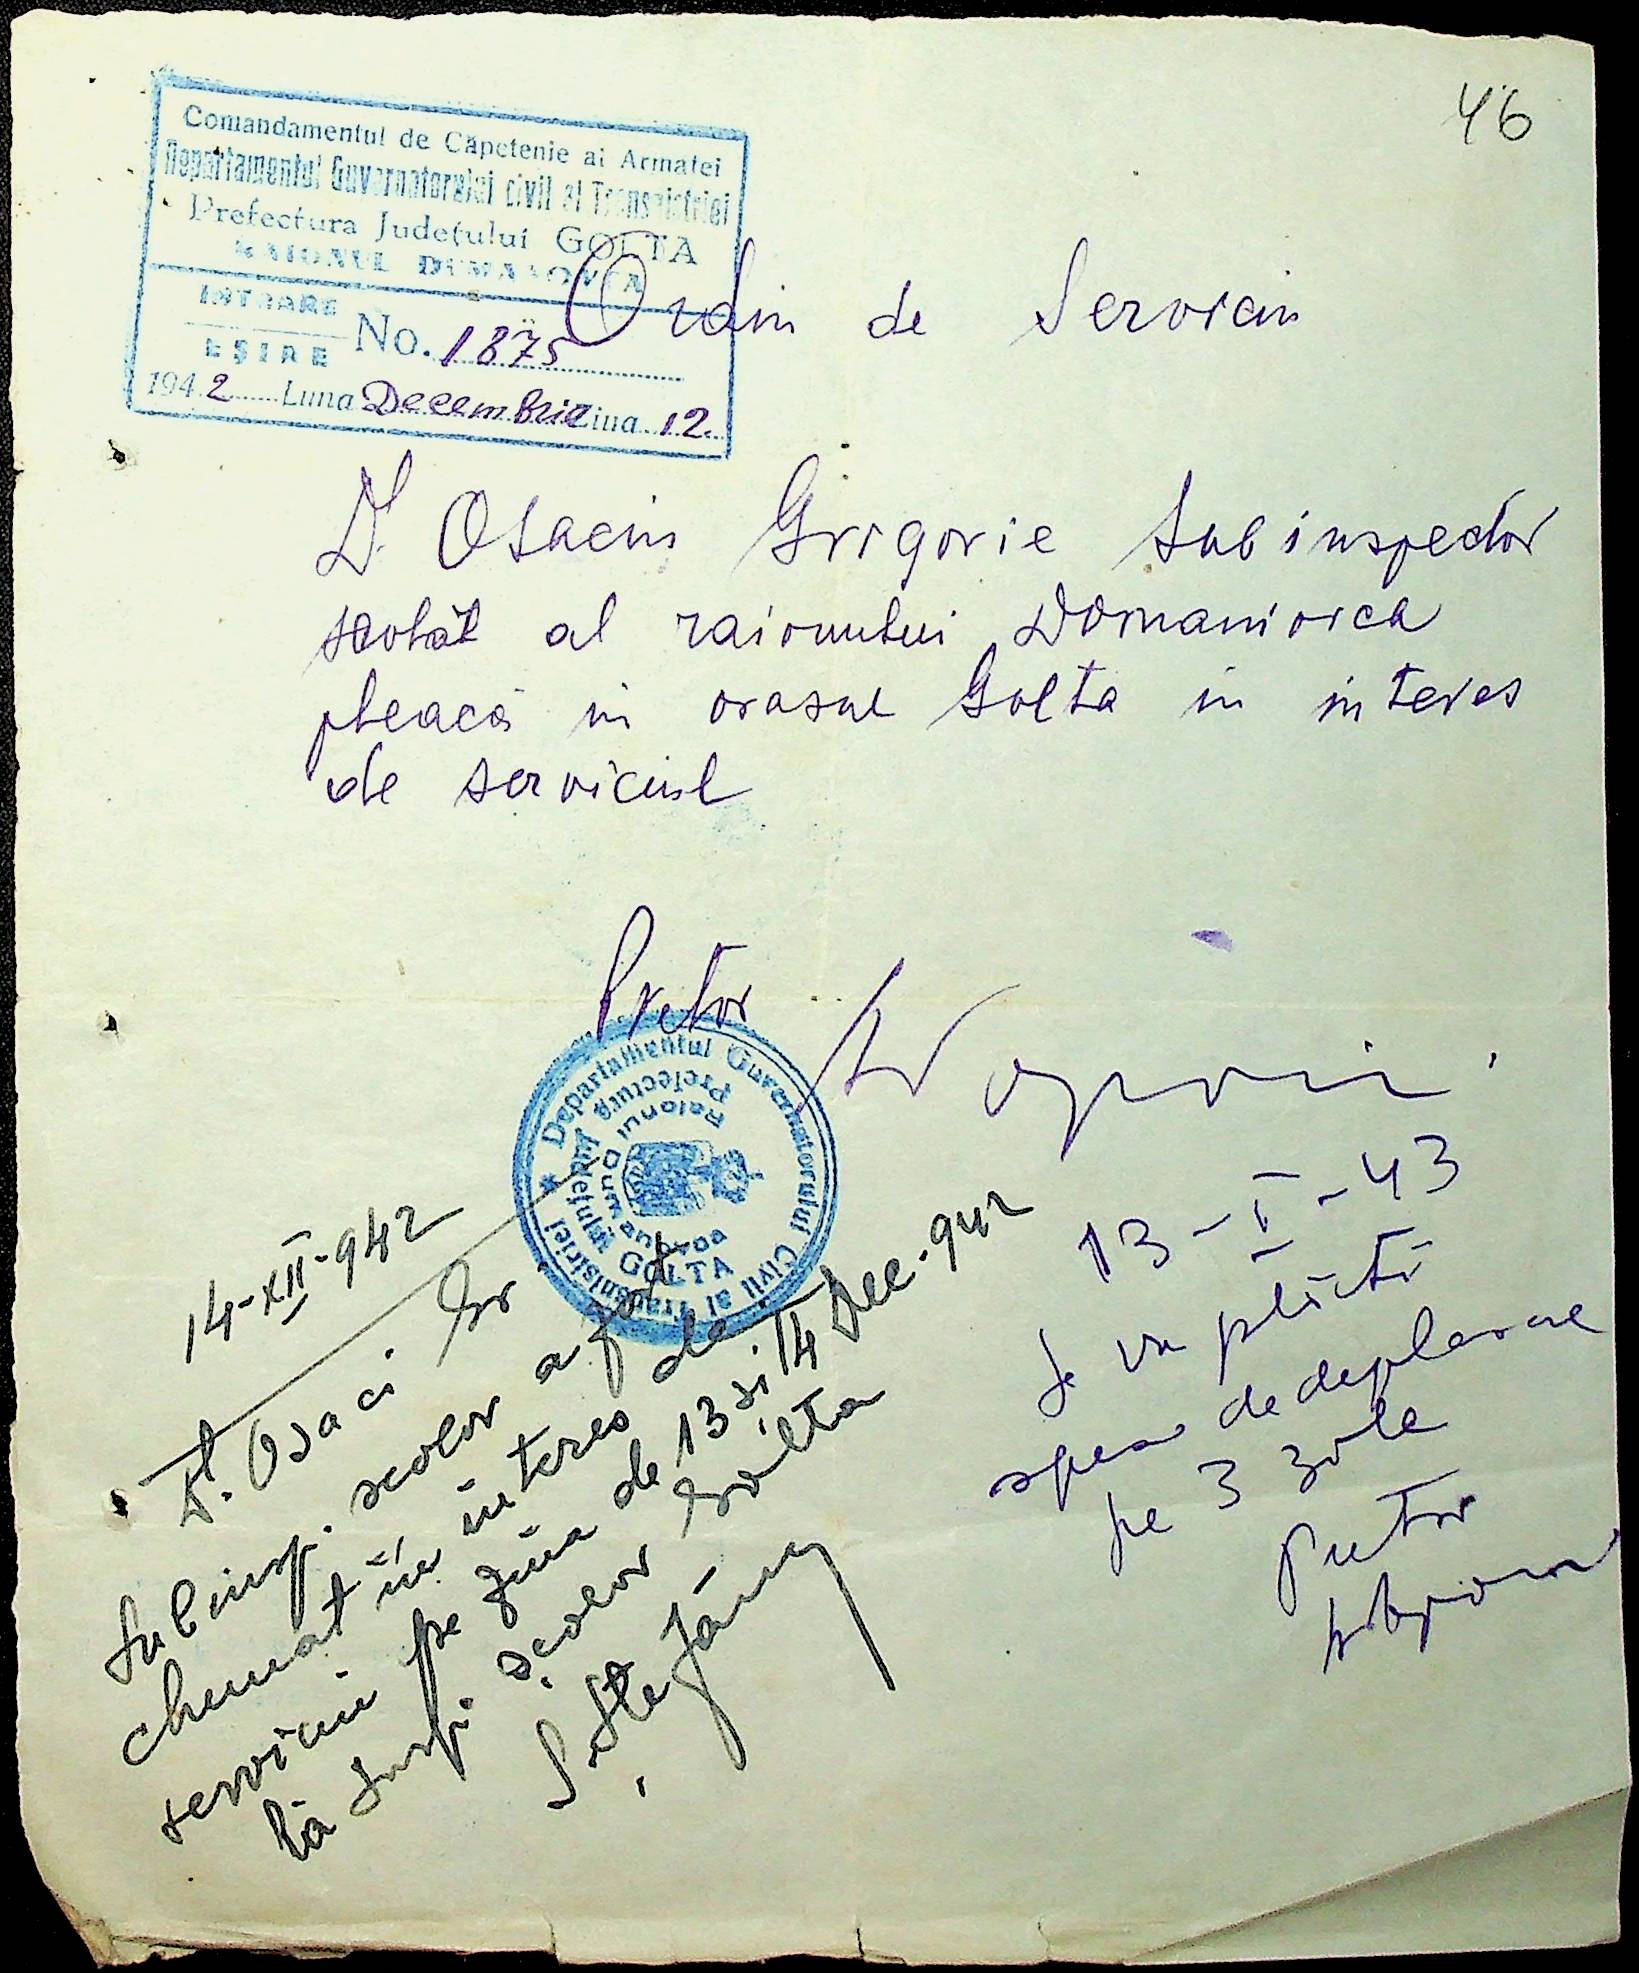 46
Comandamentul de Căpetenie al Armatei
Departamentul Guvernatorului civil al Transnistriei
Prefectura Judeţului GOLTA
RAIONUL DUMANOVCA
INTRARE
EŞIRE
No. 1875
194 2 Luna Decembrie Ziua 12
Ordin de Serviciu
D. Osaciu Grigorie Subinspector
scolăt al raionului Domaniovca
pleacă in orasul Golta in interes
de serviciul
Pretor
Departamentul Guvernatorului Civil al Transnistriei
Prefectura Judeţului GOLTA
Raionul Dumanovca
14-XII-942
D. Osaci Gr
Subinsp. scolor a fost
chemat în interes de
serviciu pe ziua de 13 și 14 Dec. 942
la Insp. școlor Golta
S. Ștefan
13-I-43
Se va plăti
spese de deplasare
pe 3 zile
Pretor